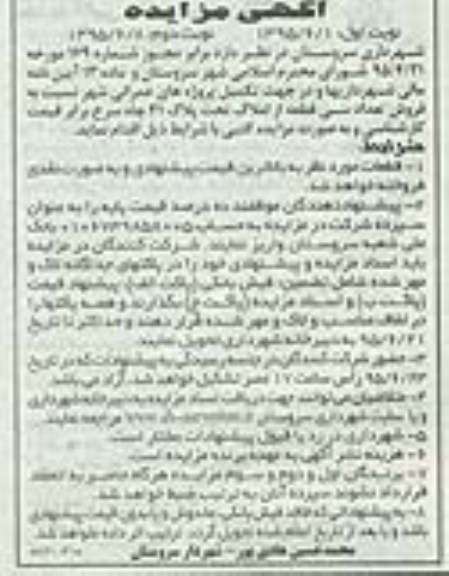 آگهی مزایده
نوبت اول: ۱۳۹۵/۶/۱ نوبت دوم: ۱۳۹۵/۶/
شهرداری سروستان در نظر دارد برابر مجوز شماره ۱۶۹ مورخه
شورای محترم اسلامی شهر سروستان و ماده ۱۳ آیین نامه
مالی شهرداریها و در جهت تکمیل پروژه های عمرانی شهر نسبت به
فروش تعداد سی قطعه از املاک تحت پلاک ۲۱ چاه سرخ برابر قیمت
کارشناسی و به صورت مزایده کتبی با شرایط ذیل اقدام نماید.
شرایط:
۱- قطعات مورد نظر به بالاترین قیمت پیشنهادی و به صورت نقدی
فروخته خواهد شد.
۲- پیشنهاد دهندگان موظفند ده درصد قیمت پایه را به عنوان
سپرده شرکت در مزایده به حساب بانک
ملی شعبه سروستان واریز نمایند. شرکت کنندگان در مزایده
باید اسناد مزایده و پیشنهادی خود را در پاکتهای جداگانه لاک و
مهر شده شامل تضمین، فیش بانکی (پاکت الف) پیشنهاد قیمت
(پاکت ب) و اسناد مزایده (پاکت ج) بگذارند و همه پاکتها را
در لفاف مناسب و لاک و مهر شده قرار دهند و حداکثر تا تاریخ
۹۵/۶/۲۱ به دبیرخانه شهرداری تحویل نمایند.
۳- حضور شرکت کنندگان در جلسه رسیدگی به پیشنهادات که در تاریخ
۹۵/۶/۲۳ رأس ساعت ۱۷ عصر تشکیل خواهد شد، آزاد می باشد.
۴- متقاضیان می توانند جهت دریافت اسناد مزایده به دبیرخانه شهرداری
و یا سایت شهرداری سروستان مراجعه نمایند.
۵- شهرداری در رد یا قبول پیشنهادات مختار است.
۶- هزینه نشر آگهی به عهده برنده مزایده است.
۷- برندگان اول و دوم و سوم مزایده هرگاه حاضر به انعقاد
قرارداد نشوند سپرده آنان به ترتیب ضبط خواهد شد.
۸- به پیشنهاداتی که فاقد فیش بانکی، مخدوش و یا بدون قیمت پیشنهادی
باشد و یا بعد از تاریخ اعلام شده تحویل گردد، ترتیب اثر داده نخواهد شد.
هادی پور - شهردار سروستان